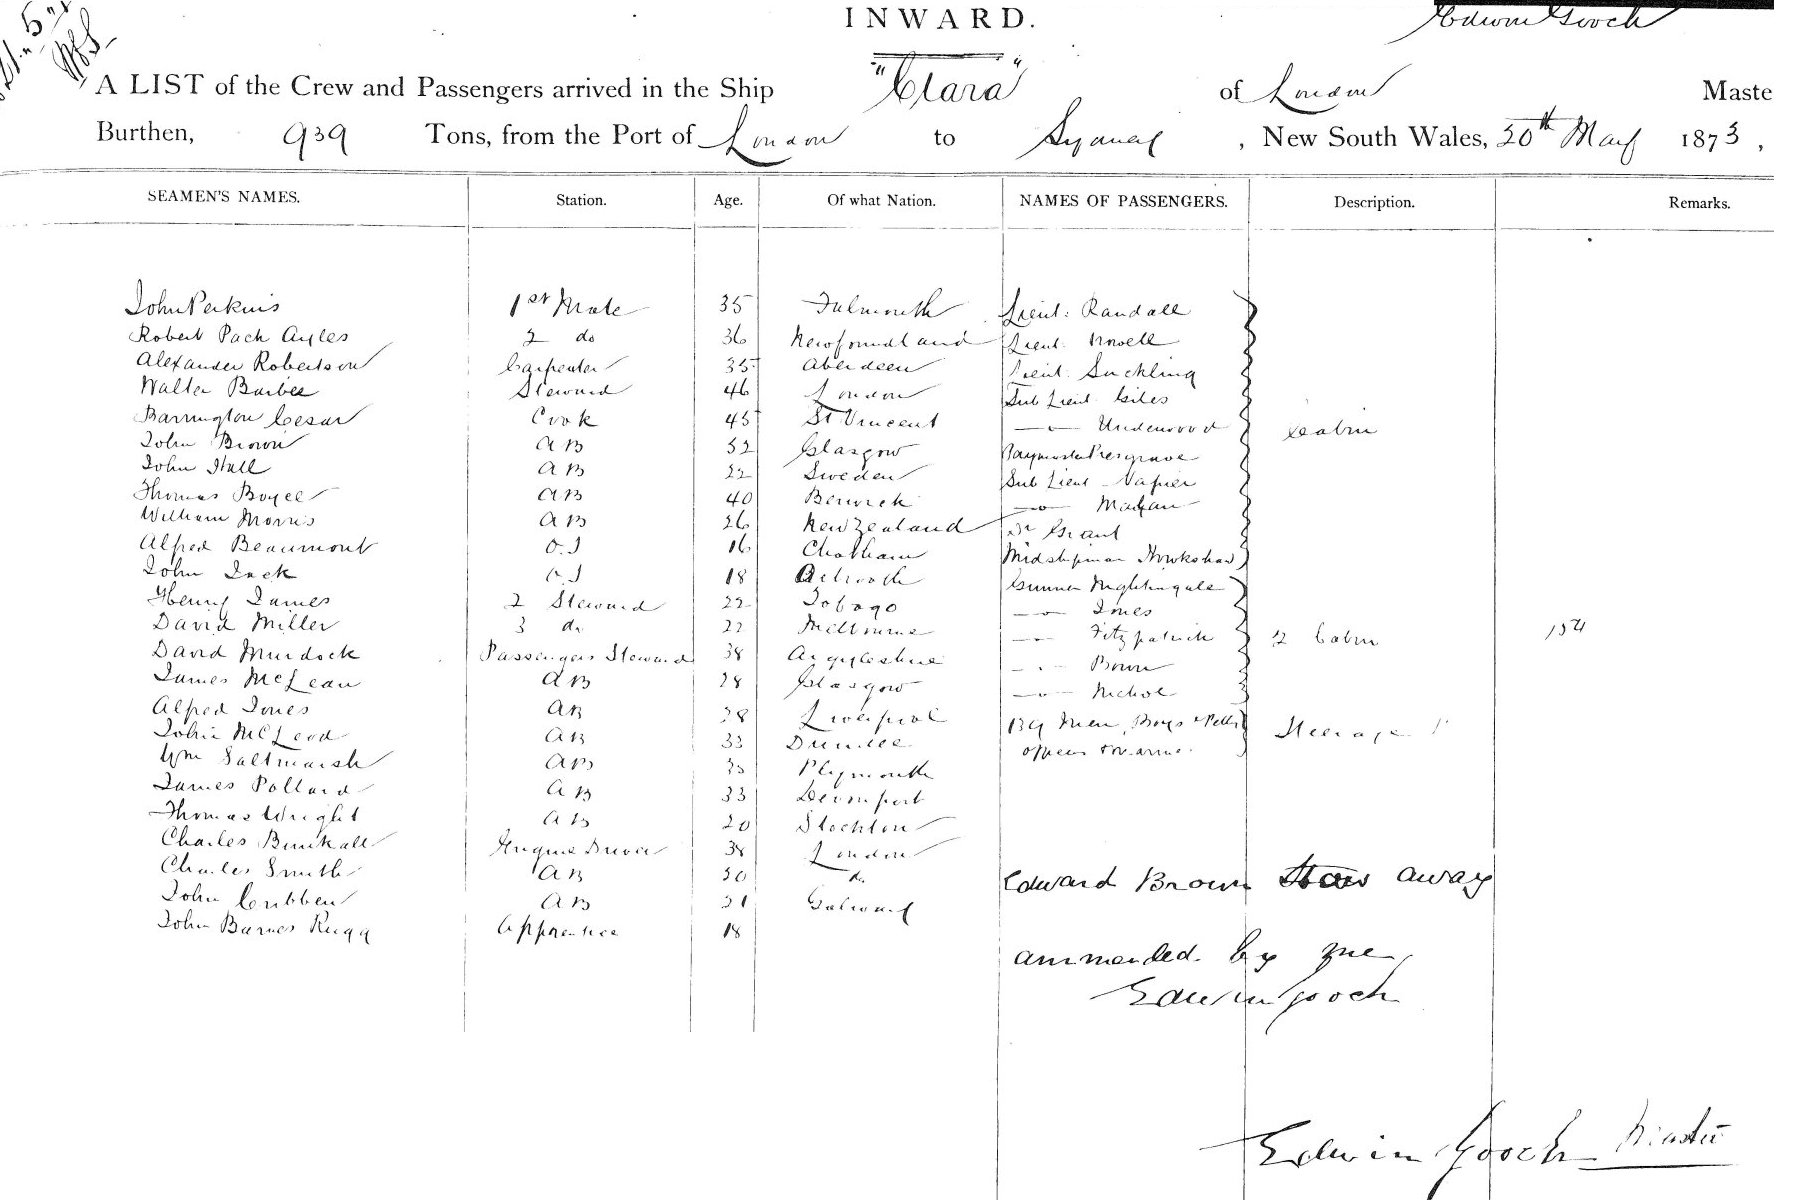 INWARD.
Edwin Gooch
A LIST of the Crew and Passengers arrived in the Ship "Clara" of London Maste
Burthen, 939 Tons, from the Port of London to Sydney, New South Wales, 20th May 1873,
SEAMEN'S NAMES. Station. Age. Of what Nation. NAMES OF PASSENGERS. Description. Remarks.
John Perkins 1st Mate 35 Falmouth Lieut: Randall
Robert Pach Ayles 2 do 36 Newfoundland Lieut.
Alexander Robertson Carpenter 35 Aberdeen Lieut. Suckling
Walter Barbee Steward 46 London Sub Lieut Giles
Barrington Cesar Cook 45 St Vincent —〃— Underwood Cabin
John Brown AB 32 Glasgow Paymaster Presgrave
John Hall AB 22 Sweden Sub Lieut Napier
Thomas Boyce AB 40 Berwick —〃—
William Morris AB 26 New Zealand Dr Grant
Alfred Beaumont O.S 16 Chatham Midshipman Hawkshaw
John Jack O.S 18 Gunner Nightingale
Henry James 2 Steward 22 Tobago —〃— Jones
David Miller 3 do 22 Melbourne —〃— Fitzpatrick 2 Cabin 154
David Murdock Passengers Steward 38 Argyleshire —〃— Brown
James McLean AB 28 Glasgow —〃— Nichol
Alfred Jones AB 28 Liverpool 139 Men, Boys & Petty Steerage
John McLeod AB 33 Dundee officers
Wm Saltmarsh AB 35 Plymouth
James Pollard AB 33 Devonport
Thomas Wright AB 20 Stockton
Charles Bunkall Engine Driver 38 London
Charles Smith AB 30 do Edward Brown Stow away
John Cribben AB 31 Galway
John Barnes Rugg Apprentice 18
ammended by me
Edwin Gooch
Edwin Gooch Master